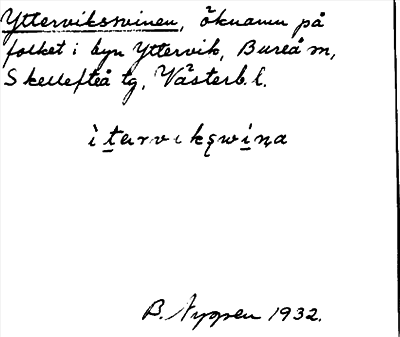 Ytterviksvinen, öknamn på
folket i byn Yttervik, Bureå m,
Skellefteå tg, Västerb. l.
ìt̲ərvikşwi̲ṇa
B. Nygren 1932.